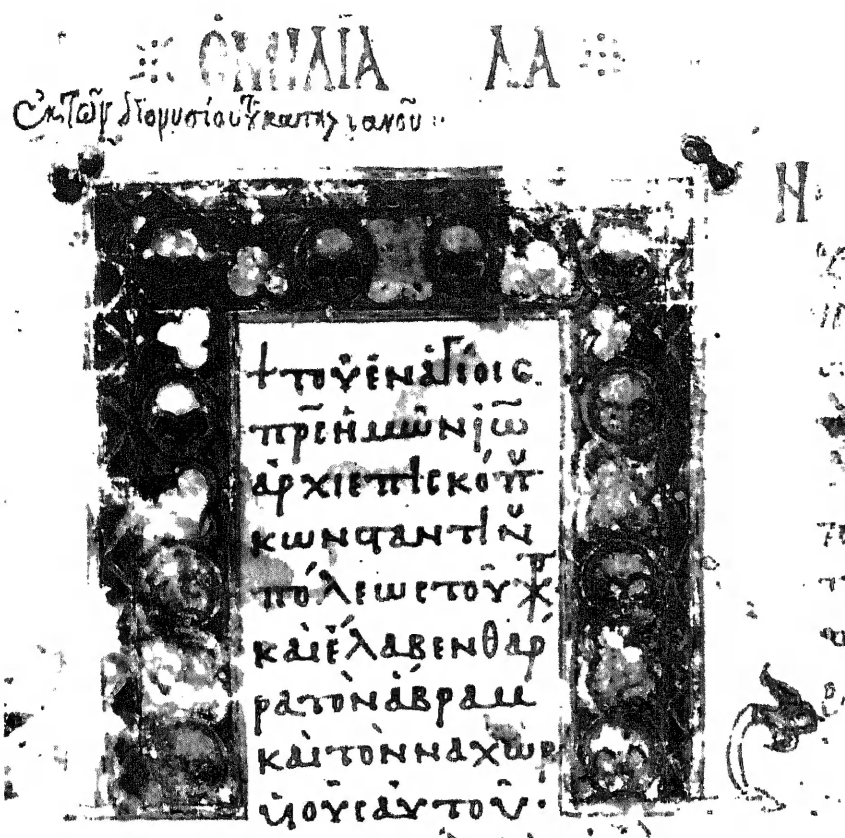 ὉΜΙΛΙΑ ΛΑ
Ἐκ τῶν διονυσίου τοῦ κατηλιανοῦ
N
+ τοῦ ἐν ἁγίοις
πρ̅ς ἡμῶν ἰω̅
ἀρχιεπισκόπ
κωνσταντιν
πόλεως τοῦ χρ
καὶ ἔλαβεν θάρ
ρα τὸν ἄβραμ
καὶ τὸν ναχὼρ
υἱοὺς αὐτοῦ·